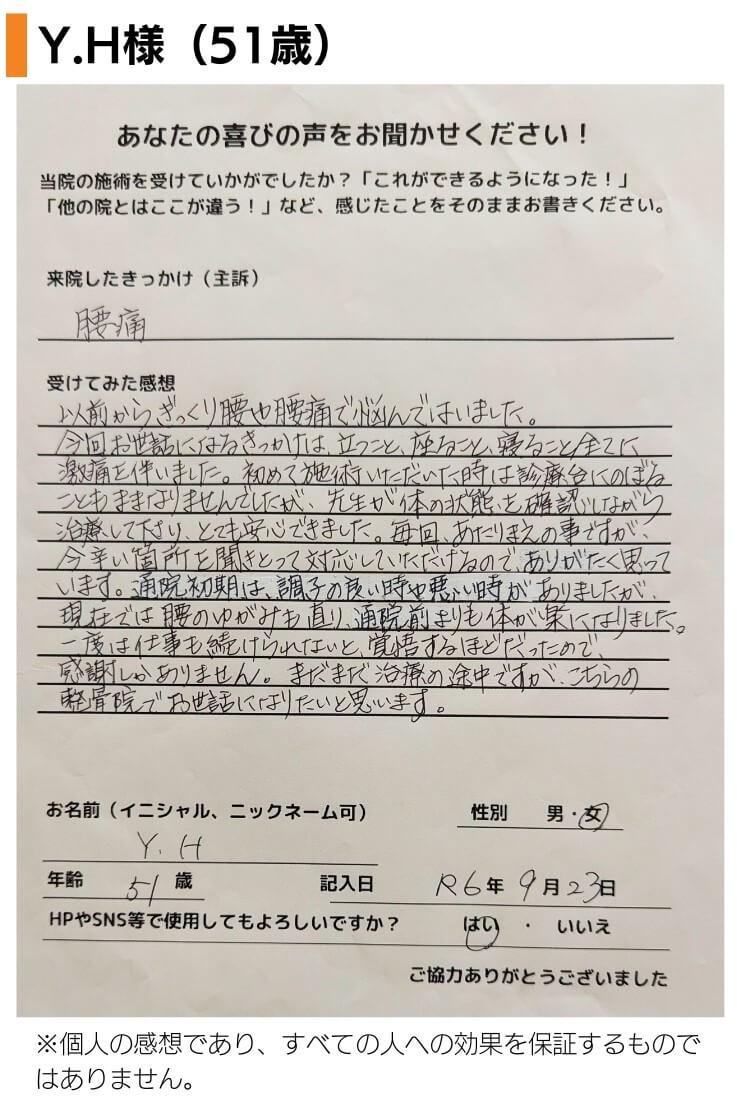 Y.H様（51歳）
あなたの喜びの声をお聞かせください！
当院の施術を受けていかがでしたか？「これができるようになった！」
「他の院とはここが違う！」など、感じたことをそのままお書きください。
来院したきっかけ（主訴）
腰痛
受けてみた感想
以前からぎっくり腰や腰痛で悩んではいました。
今回お世話になるきっかけは、立つこと、座ること、寝ること全てに
激痛を伴いました。初めて施術いただいた時は診療台にのぼる
こともままなりませんでしたが、先生が体の状態を確認しながら
治療して下さり、とても安心できました。毎回、あたりまえの事ですが、
今辛い箇所を聞きとって対応していただけるので、ありがたく思って
います。通院初期は、調子の良い時や悪い時がありましたが、
現在では腰のゆがみも直り、通院前よりも体が楽になりました。
一度は仕事も続けられないと、覚悟するほどだったので、
感謝しかありません。まだまだ治療の途中ですが、こちらの
整骨院でお世話になりたいと思います。
お名前（イニシャル、ニックネーム可）　性別　男・女
Y.H
年齢　51　歳　記入日　R6年9月23日
HPやSNS等で使用してもよろしいですか？　はい・いいえ
ご協力ありがとうございました
※個人の感想であり、すべての人への効果を保証するもので
はありません。